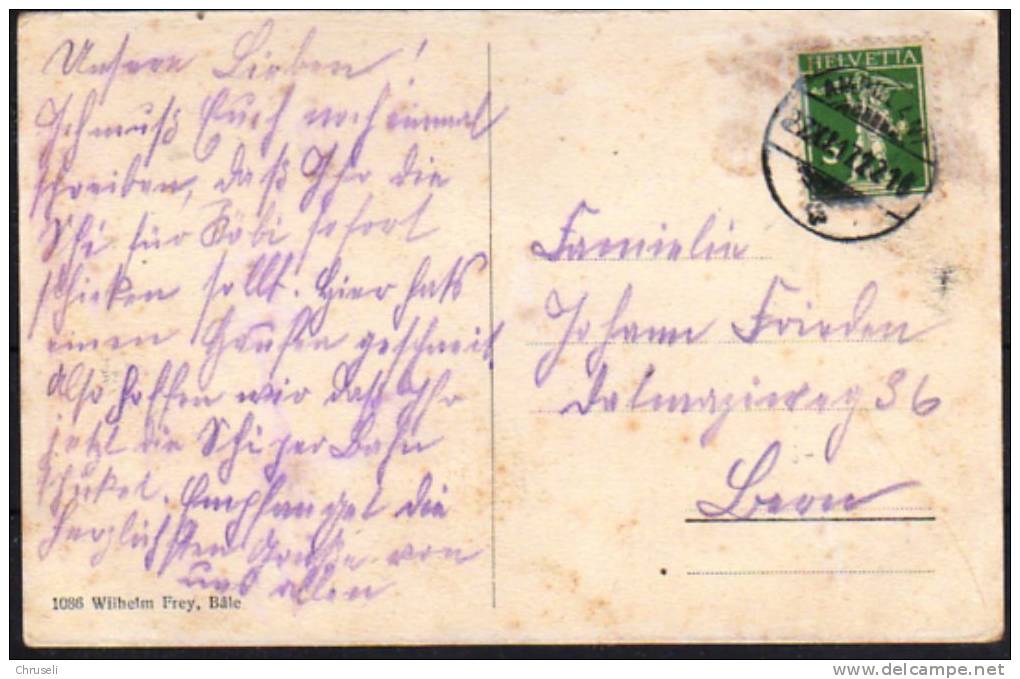 Unsere Lieben!
Ich muß Euch noch einmal
schreiben, daß Ihr die
Shi für Köbi sofort
schicken sollt. Hier hats
einen Haufen geschneit
also hoffen wir daß Ihr
jetzt die Shi per Bahn
schicket. Empfanget die
herzlichsten Grüße von
uns allen
1086 Wilhelm Frey, Bâle
HELVETIA
Familie
Johann Frieden
Dalmaziweg 86
Bern
Chruseli
www.delcampe.net